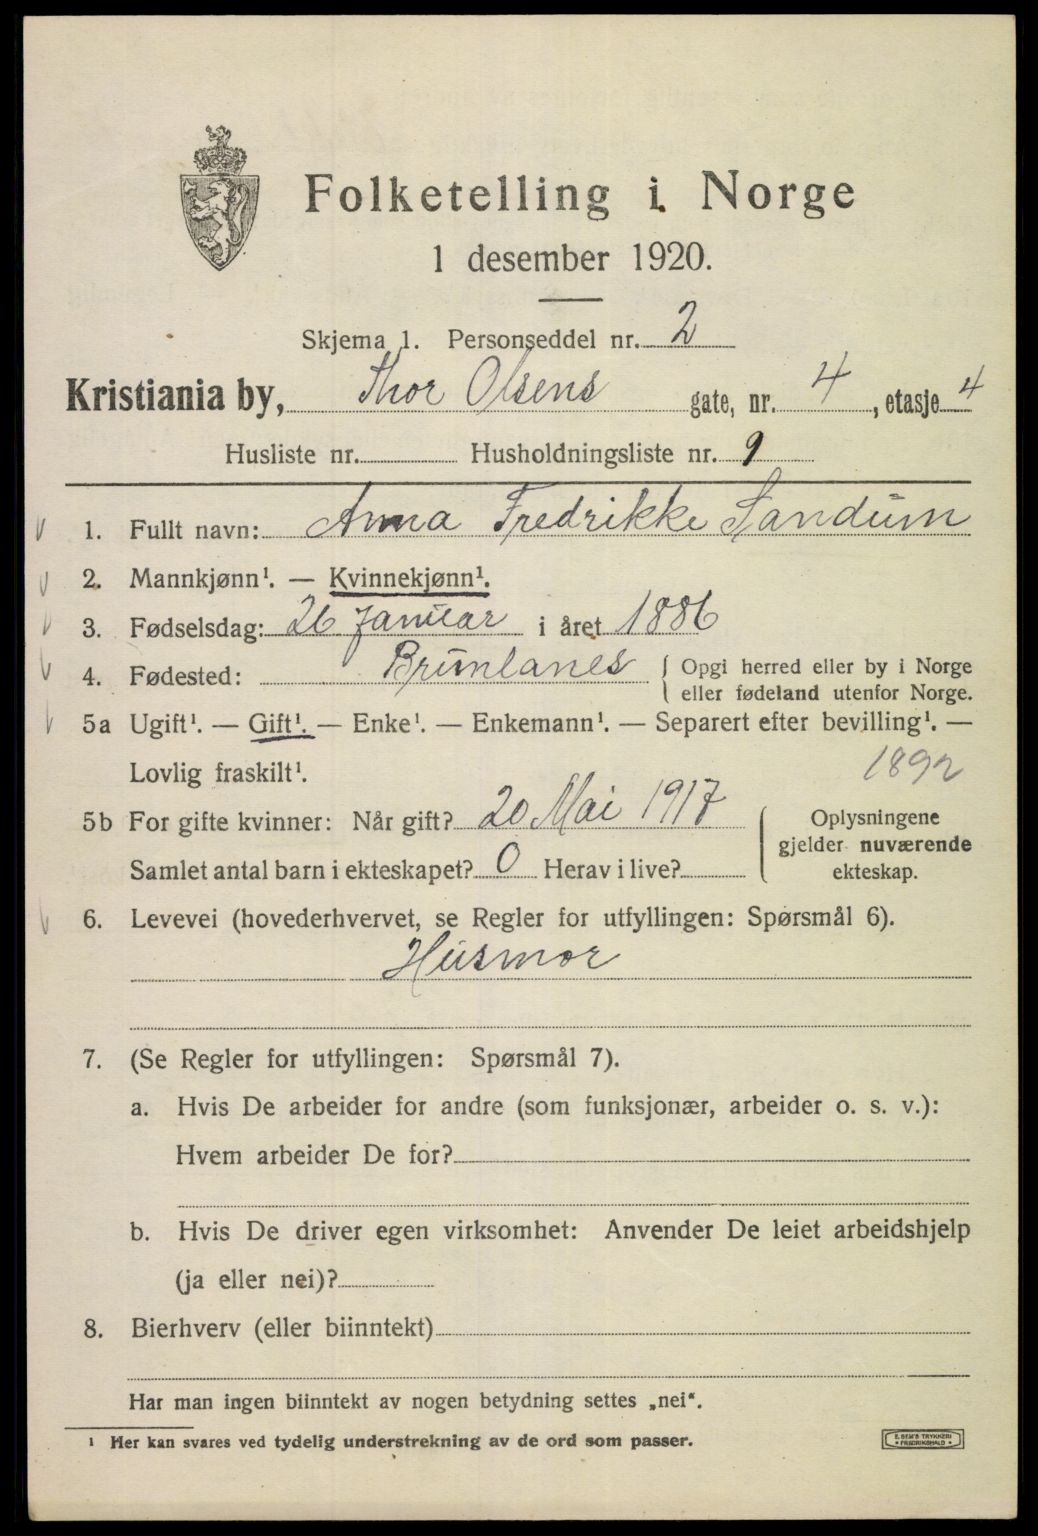 Folketelling i Norge
1 desember 1920.
Skjema 1. Personseddel nr. 2
Kristiania by, Thor Olsens gate, nr. 4, etasje 4
Husliste nr. Husholdningsliste nr. 9
1. Fullt navn: Anna Fredrikke Sandum
2. Mannkjønn¹. — Kvinnekjønn¹.
3. Fødselsdag: 26 januar i året 1886
4. Fødested: Brunlanes { Opgi herred eller by i Norge
eller fødeland utenfor Norge.
5a Ugift¹. — Gift¹. — Enke¹. — Enkemann¹. — Separert efter bevilling¹. —
Lovlig fraskilt¹. 1892
5b For gifte kvinner: Når gift? 20 Mai 1917
Samlet antal barn i ekteskapet? 0 Herav i live?
{ Oplysningene
gjelder nuværende
ekteskap.
6. Levevei (hovederhvervet, se Regler for utfyllingen: Spørsmål 6).
Husmor
7. (Se Regler for utfyllingen: Spørsmål 7).
a. Hvis De arbeider for andre (som funksjonær, arbeider o. s. v.):
Hvem arbeider De for?
b. Hvis De driver egen virksomhet: Anvender De leiet arbeidshjelp
(ja eller nei)?
8. Bierhverv (eller biinntekt)
Har man ingen biinntekt av nogen betydning settes „nei“.
¹ Her kan svares ved tydelig understrekning av de ord som passer.
E. SEM'S TRYKKERI
• FREDRIKSHALD •